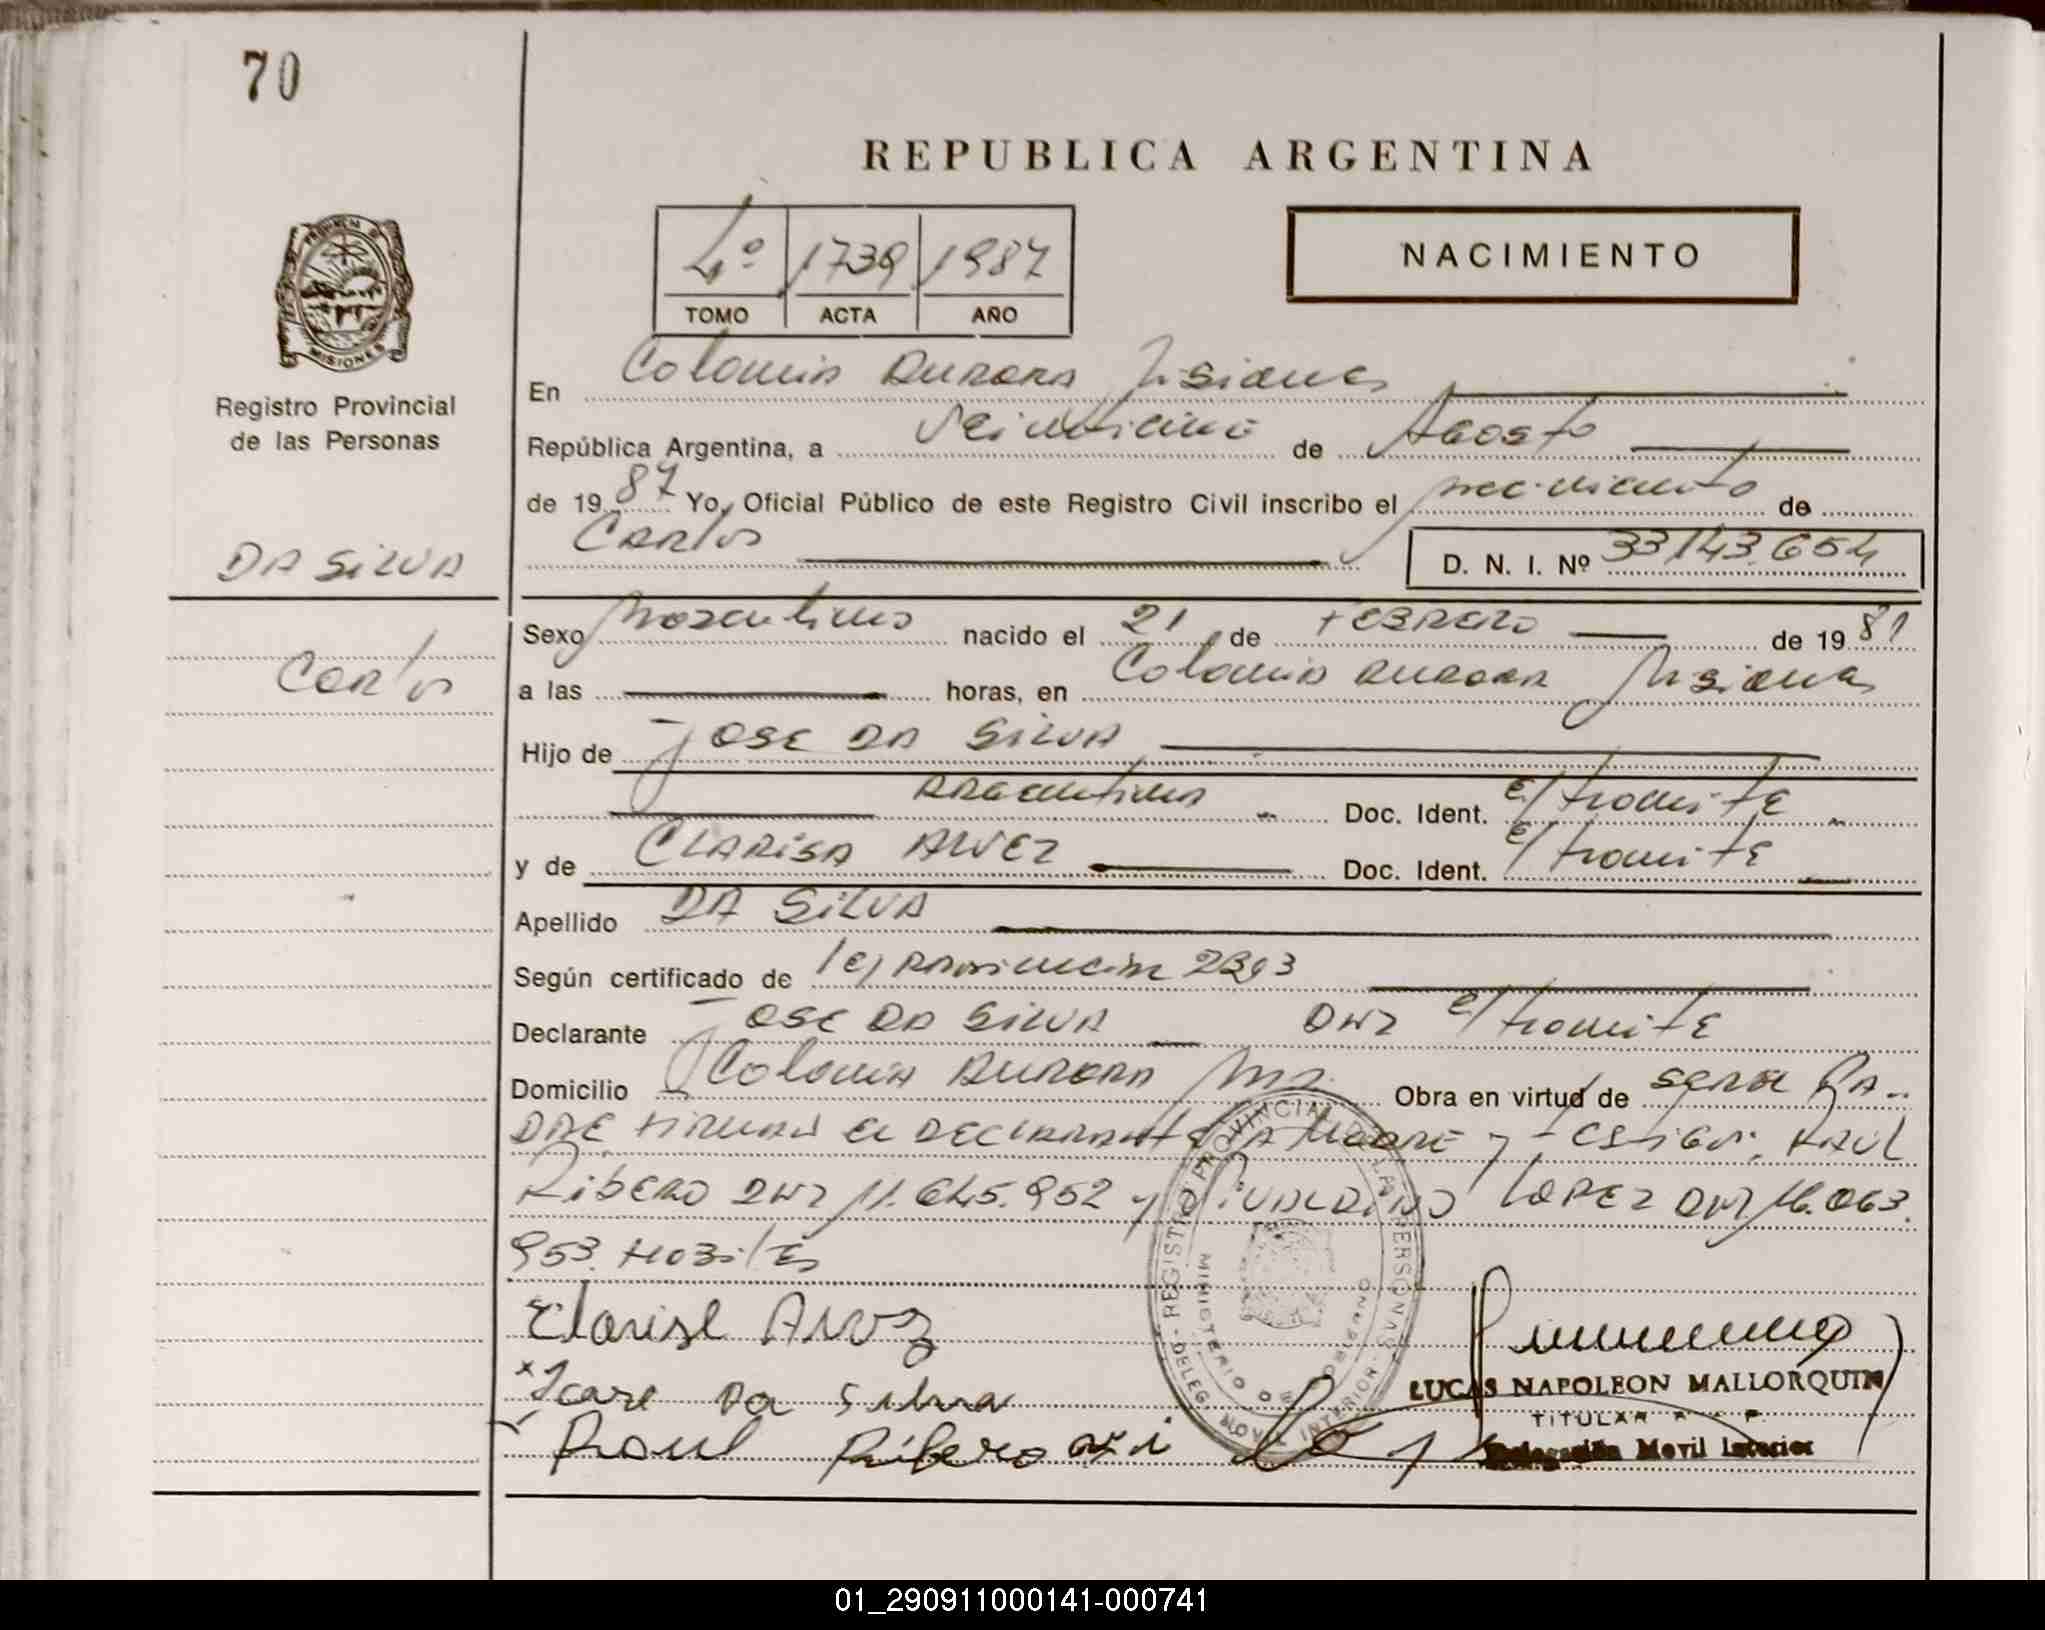 70
REPUBLICA ARGENTINA
4º 1739 1987
TOMO ACTA AÑO
NACIMIENTO
PROVINCIA D
MISIONES
Registro Provincial
de las Personas
DA SILVA
Carlos
En Colonia Aurora Misiones
República Argentina, a Veinticinco de Agosto
de 1987 Yo, Oficial Público de este Registro Civil inscribo el nacimiento de
Carlos D. N. I. Nº 33.143.654
Sexo Masculino nacido el 21 de FEBRERO de 1981
a las horas, en Colonia Aurora Misiones
Hijo de JOSE DA SILVA
Argentina Doc. Ident. E/tramite
y de CLARISA ALVEZ Doc. Ident. E/tramite
Apellido DA SILVA
Según certificado de ley Provincial
Declarante JOSE DA SILVA DNI E/tramite
Domicilio Colonia Aurora Mnes. Obra en virtud de SER EL PA-
DRE FIRMAN EL DECLARANTE LA MADRE y TESTIGOS: RAUL
RIBERO DNI 11.645.952 y LOPEZ DNI 16.063.
953. HABILES
Clarisa Alvez
x Jose Da Silva
Raul Ribero
REGISTRO PROVINCIAL DE LAS PERSONAS
MINISTERIO DE GOBIERNO
DELEG. MOVIL INTERIOR
LUCAS NAPOLEON MALLORQUIN
TITULAR
Delegación Movil Interior
01_290911000141-000741